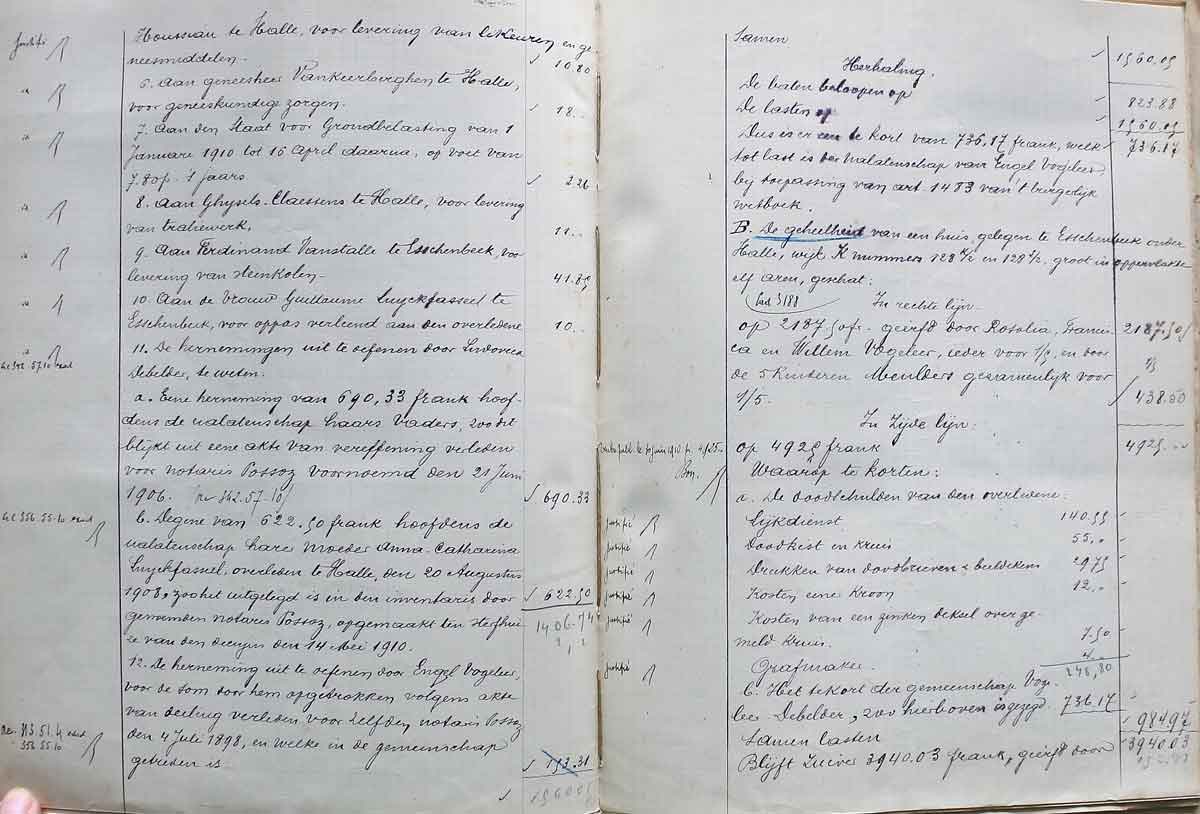 Houssiau te Halle, voor levering van likeuren en ge
neesmiddelen. 10.80
justifié
6. Aan geneesheer Vankeerberghen te Halle,
voor geneeskundige zorgen. 18..
7. Aan den Staat voor Grondbelasting van 1
Januari 1910 tot 16 April daarna, op voet van
7.80 fr. 's jaars. 2.26
8. Aan Ghysels-Claessens te Halle, voor levering
van traliewerk. 11..
9. Aan Ferdinand Vanstalle te Esschenbeek, voor
levering van steenkolen. 41.85
10. Aan de Vrouw Guillaume Luyckfasseel te
Esschenbeek, voor oppas verleend aan den overledene 10..
11. De hernemingen uit te oefenen door Ludovica
Debelder, te weten:
a. Eene herneming van 690,33 frank hoof-
dens de nalatenschap haars Vaders, zoo dit
blijkt uit eene akte van vereffening verleden
voor notaris Possoz voornoemd den 21 Juni
1906. 690.33
b. Degene van 622.50 frank hoofdens de
nalatenschap harer Moeder Anna-Catharina
Luyckfasseel, overleden te Halle, den 20 Augustus
1908, zoo het uitgelegd is in den inventaris door
622.50
genoemden notaris Possoz, opgemaakt ten sterfhui-
1406.74
ze van den decujus den 14 Mei 1910.
12. De herneming uit te oefenen door Engel Vogeleer,
voor de som door hem opgetrokken volgens akte
van deeling verleden voor zelfden notaris Possoz
den 4 Julie 1898, en welke in de gemeenschap
getreden is. 153.31
1560.05
Samen 1560.05
Herhaling.
De baten beloopen op 823.88
De lasten op 1560.05
Dus is er een te kort van 736,17 frank, welk 736.17
tot last is der nalatenschap van Engel Vogeleer,
bij toepassing van art. 1483 van 't burgerlijk
wetboek.
B. De geheelheid van een huis, gelegen te Esschenbeek onder
Halle, wijk K nummers 128 1/2 en 128 2/2, groot in oppervlakte
elf aren, geschat:
In rechte lijn
op 2187.50 fr. geërfd door Rosalia, Francis- 2187.50
ca en Willem Vogeleer, ieder voor 1/5, en door 1/5
de 5 kinderen Meulders gezamenlijk voor
1/5. 438.50
In Zijde lijn:
op 4925 frank 4925...
Waarop te korten:
a. De doodschulden van den overledene:
justifié
Lijkdienst 140.55
justifié
Doodkist en kruis 55..
justifié
Drukken van doodbrieven & beeldekens 29.75
justifié
Kosten eene Kroon 12..
justifié
Kosten van een zinken deksel overge-
meld kruis. 7.50
justifié
Grafmaker. 4..
248,80
b. Het tekort der gemeenschap Voge-
leer Debelder, zoo hierboven is gezegd 736.17
Samen lasten 984.97
Blijft Zuiver 3940.03 frank, geërfd door 3940.03